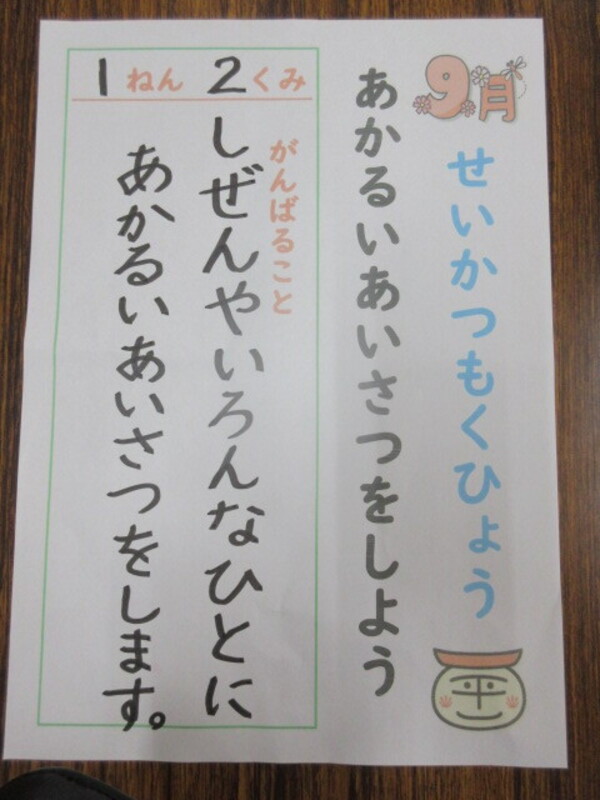 9月
せいかつもくひょう
あかるいあいさつをしよう
1ねん2くみ
がんばること
しぜんやいろんなひとに
あかるいあいさつをします。